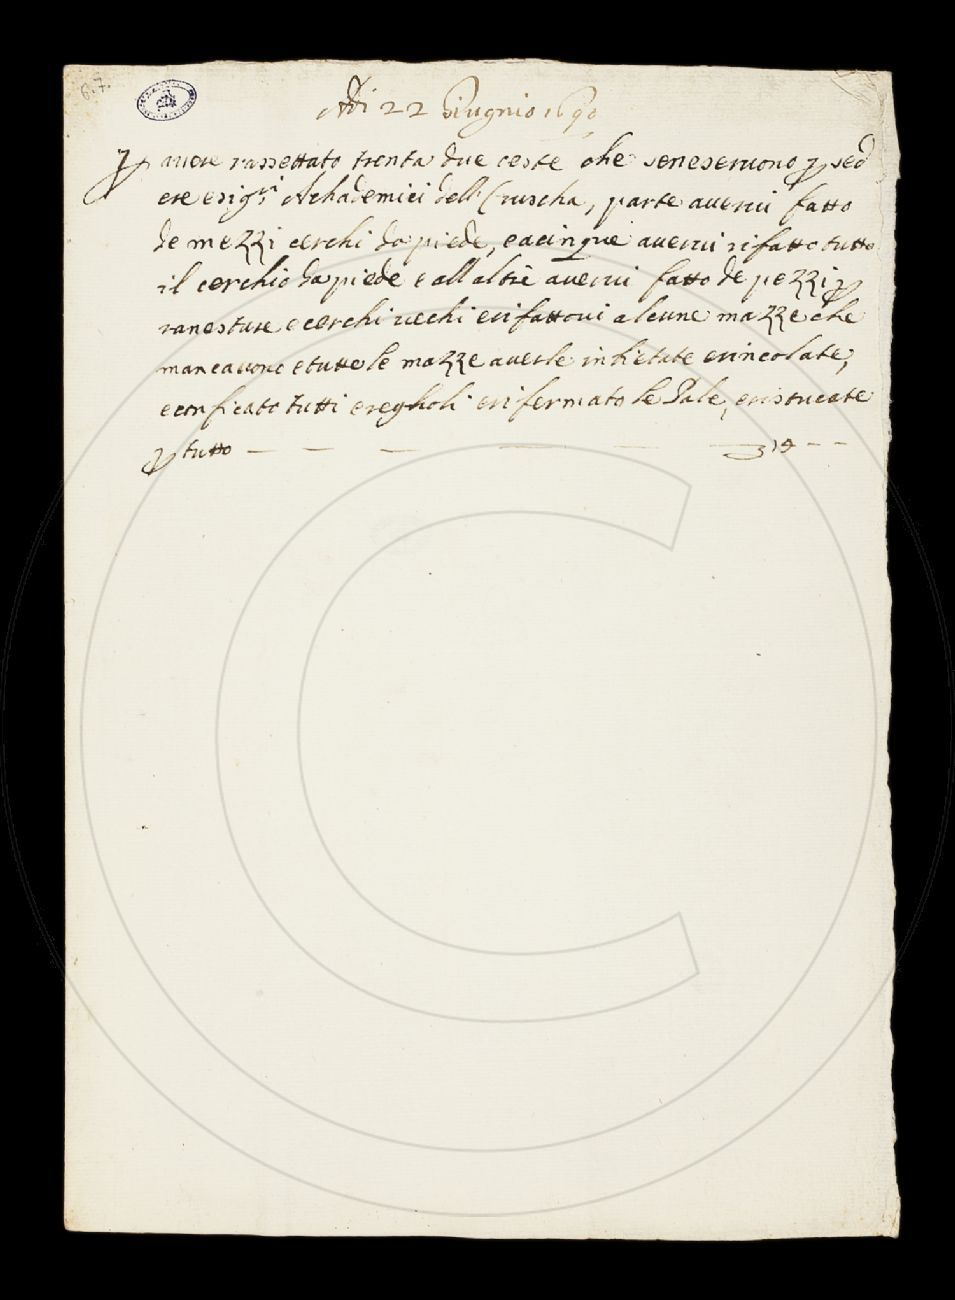 6.7.
Adi 22 Giugnio 1690
P auere rassettato trenta due ceste che seneseruono p sed
ere e sig.ri Achademici dell Cruscha, parte auerui fatto
de mezzi cerchi da piede, e a cinque auerui rifatto tutto
il cerchio da piede e all altre auerui fatto de pezzi p
ranesture e cerchi uechi e rifattoui alcune mazze che
mancauono e tutte le mazze auerle inchietate e rincolate,
e conficato tutti e regholi e rifermato le Pale, e ristucate
p tutto